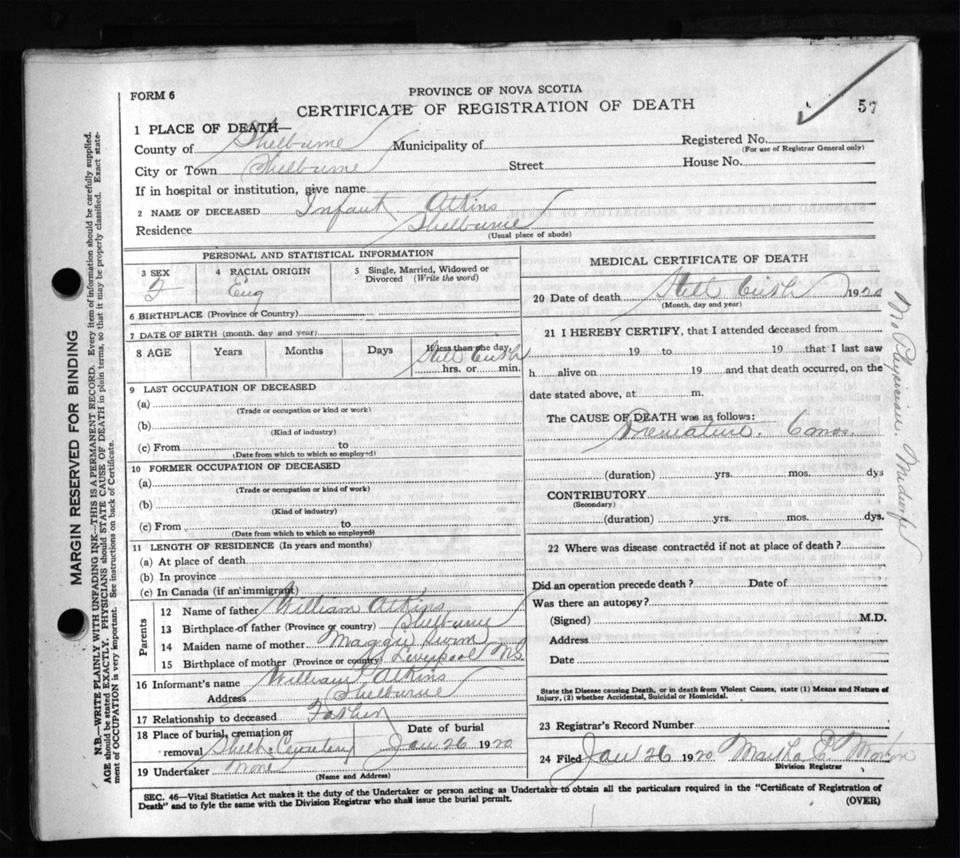 FORM 6
PROVINCE OF NOVA SCOTIA
CERTIFICATE OF REGISTRATION OF DEATH
57
1 PLACE OF DEATH—
County of Shelburne Municipality of Registered No.
(For use of Registrar General only)
City or Town Shelburne Street House No.
If in hospital or institution, give name
2 NAME OF DECEASED Infant Atkins
Residence Shelburne
(Usual place of abode)
PERSONAL AND STATISTICAL INFORMATION
3 SEX 4 RACIAL ORIGIN 5 Single, Married, Widowed or Divorced (Write the word)
Eng
6 BIRTHPLACE (Province or Country)
7 DATE OF BIRTH (month, day and year)
8 AGE Years Months Days If less than one day,
Still Birth
hrs. or min.
9 LAST OCCUPATION OF DECEASED
(a)
(Trade or occupation or kind or work)
(b)
(Kind of industry)
(c) From to
(Date from which to which so employed)
10 FORMER OCCUPATION OF DECEASED
(a)
(Trade or occupation or kind of work)
(b)
(Kind of industry)
(c) From to
(Date from which to which so employed)
11 LENGTH OF RESIDENCE (In years and months)
(a) At place of death
(b) In province
(c) In Canada (if an immigrant)
Parents
12 Name of father William Atkins
13 Birthplace of father (Province or country) Shelburne
14 Maiden name of mother Maggie Swim
15 Birthplace of mother (Province or country) Liverpool N.S.
16 Informant's name William Atkins
Address Shelburne
17 Relationship to deceased Father
18 Place of burial, cremation or removal Shelb. Cemetery
Date of burial Jan 26 1920
19 Undertaker None
(Name and Address)
MEDICAL CERTIFICATE OF DEATH
20 Date of death Still Birth 1920
(Month, day and year)
21 I HEREBY CERTIFY, that I attended deceased from
19 to 19 that I last saw
h alive on 19 and that death occurred, on the
date stated above, at m.
The CAUSE OF DEATH was as follows:
Premature. 6 mos.
(duration) yrs. mos. dys
CONTRIBUTORY
(Secondary)
(duration) yrs. mos. dys.
22 Where was disease contracted if not at place of death?
Did an operation precede death? Date of
Was there an autopsy?
(Signed) M.D.
Address
Date
State the Disease causing Death, or in death from Violent Causes, state (1) Means and Nature of
Injury, (2) whether Accidental, Suicidal or Homicidal.
23 Registrar's Record Number
24 Filed Jan 26 1920 Martha
Division Registrar
SEC. 46—Vital Statistics Act makes it the duty of the Undertaker or person acting as Undertaker to obtain all the particulars required in the "Certificate of Registration of
Death" and to fyle the same with the Division Registrar who shall issue the burial permit.
(OVER)
MARGIN RESERVED FOR BINDING
N.B.—WRITE PLAINLY WITH UNFADING INK—THIS IS A PERMANENT RECORD. Every item of information should be carefully supplied.
AGE should be stated EXACTLY. PHYSICIANS should STATE CAUSE OF DEATH in plain terms, so that it may be properly classified. Exact state-
ment of OCCUPATION is very important. See instructions on back of Certificate.
No Physician. Midwife